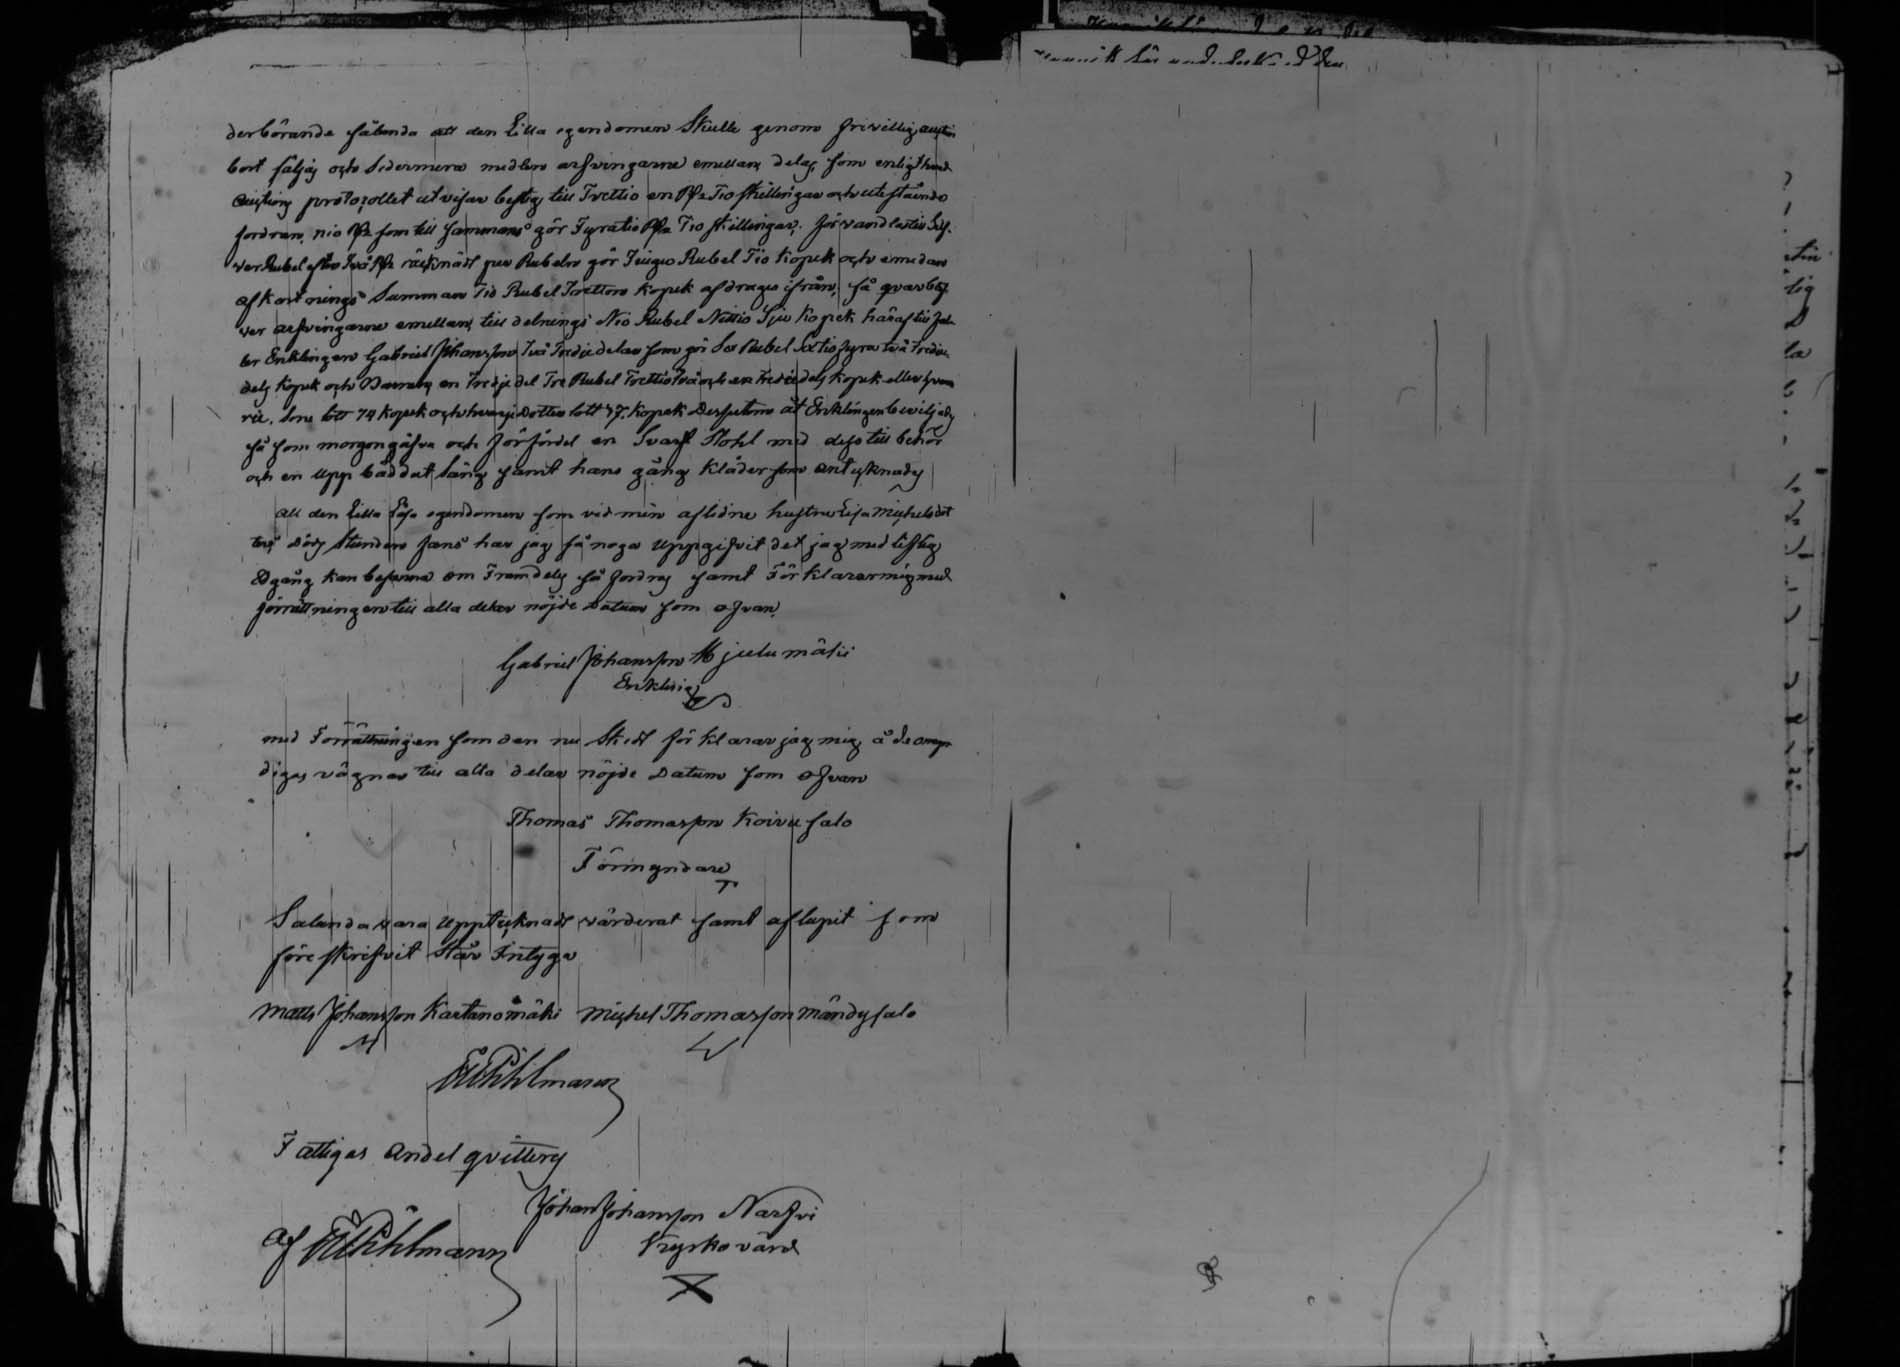 derbörande sålunda att den Lilla egendomen Skulle genom frivillig auction
bort säljas och Sedermera medlem arfvingarne emellan delas, som enligt
Auctions protocollet utvisar bestig till Trettio en Rd Tio skillingar och utestående
fordran, nio Rd som till sammans gör Fyratio Rd Tio skillingar, förvandlat till Silf-
ver Rubel efter Två Rd räcknadt per Rubeln gör Tjugo Rubel Tio kopek och emedan
afkortnings Summan Tio Rubel Tretton kopek afdrages ifrån, så qvarblif
ver arfvingarne emellan till delnings Nio Rubel Nittio Sju kopek häraf tillfal-
ler Enklingen Gabriel Johansson Två Tredje delar som gör Sex Rubel Sextio fyra två tredje
dels kopek och Barnen en Tredje del Tre Rubel Trettio Två och en Tredje dels kopek eller hvar
je Sons lott 74 kopek och hvarje Dotters lott 37 kopek Dessutom åt Enklingen beviljades
så som morgongåfva och förfördel en Svarf Stohl med dess till behör
och en Upp bäddat Säng samt hans gång kläder som antecknades
All den Lilla Lösa egendomen som vid min aflidne hustru Lisa Michelsdot
ters Döds Stunden fans har jag så noga Uppgifvit det jag med Liflig
Edgång kan besanna om Framdeles så fordras samt Förklarar mig med
förrättningen till alla delar nöjde Datum som ofvan
Gabriel Johansson Mjulumäki
Enkling
med Förrättningen som den nu Skedt för klarar jag mig å de omyn
diges vägnar till alla delar nöjde Datum som ofvan
Thomas Thomasson Koivusalo
Förmyndare
Salunda vara Upptecknadt värderat samt aflupit som
föreskrifvit Står Intyga
Matts Johansson Kartanomäki Michel Thomasson Mändysalo
Pihlmann
Fattigas Andel qvitteras
Johan Johansson Narfvi
af Pihlmann Kyrkovärd